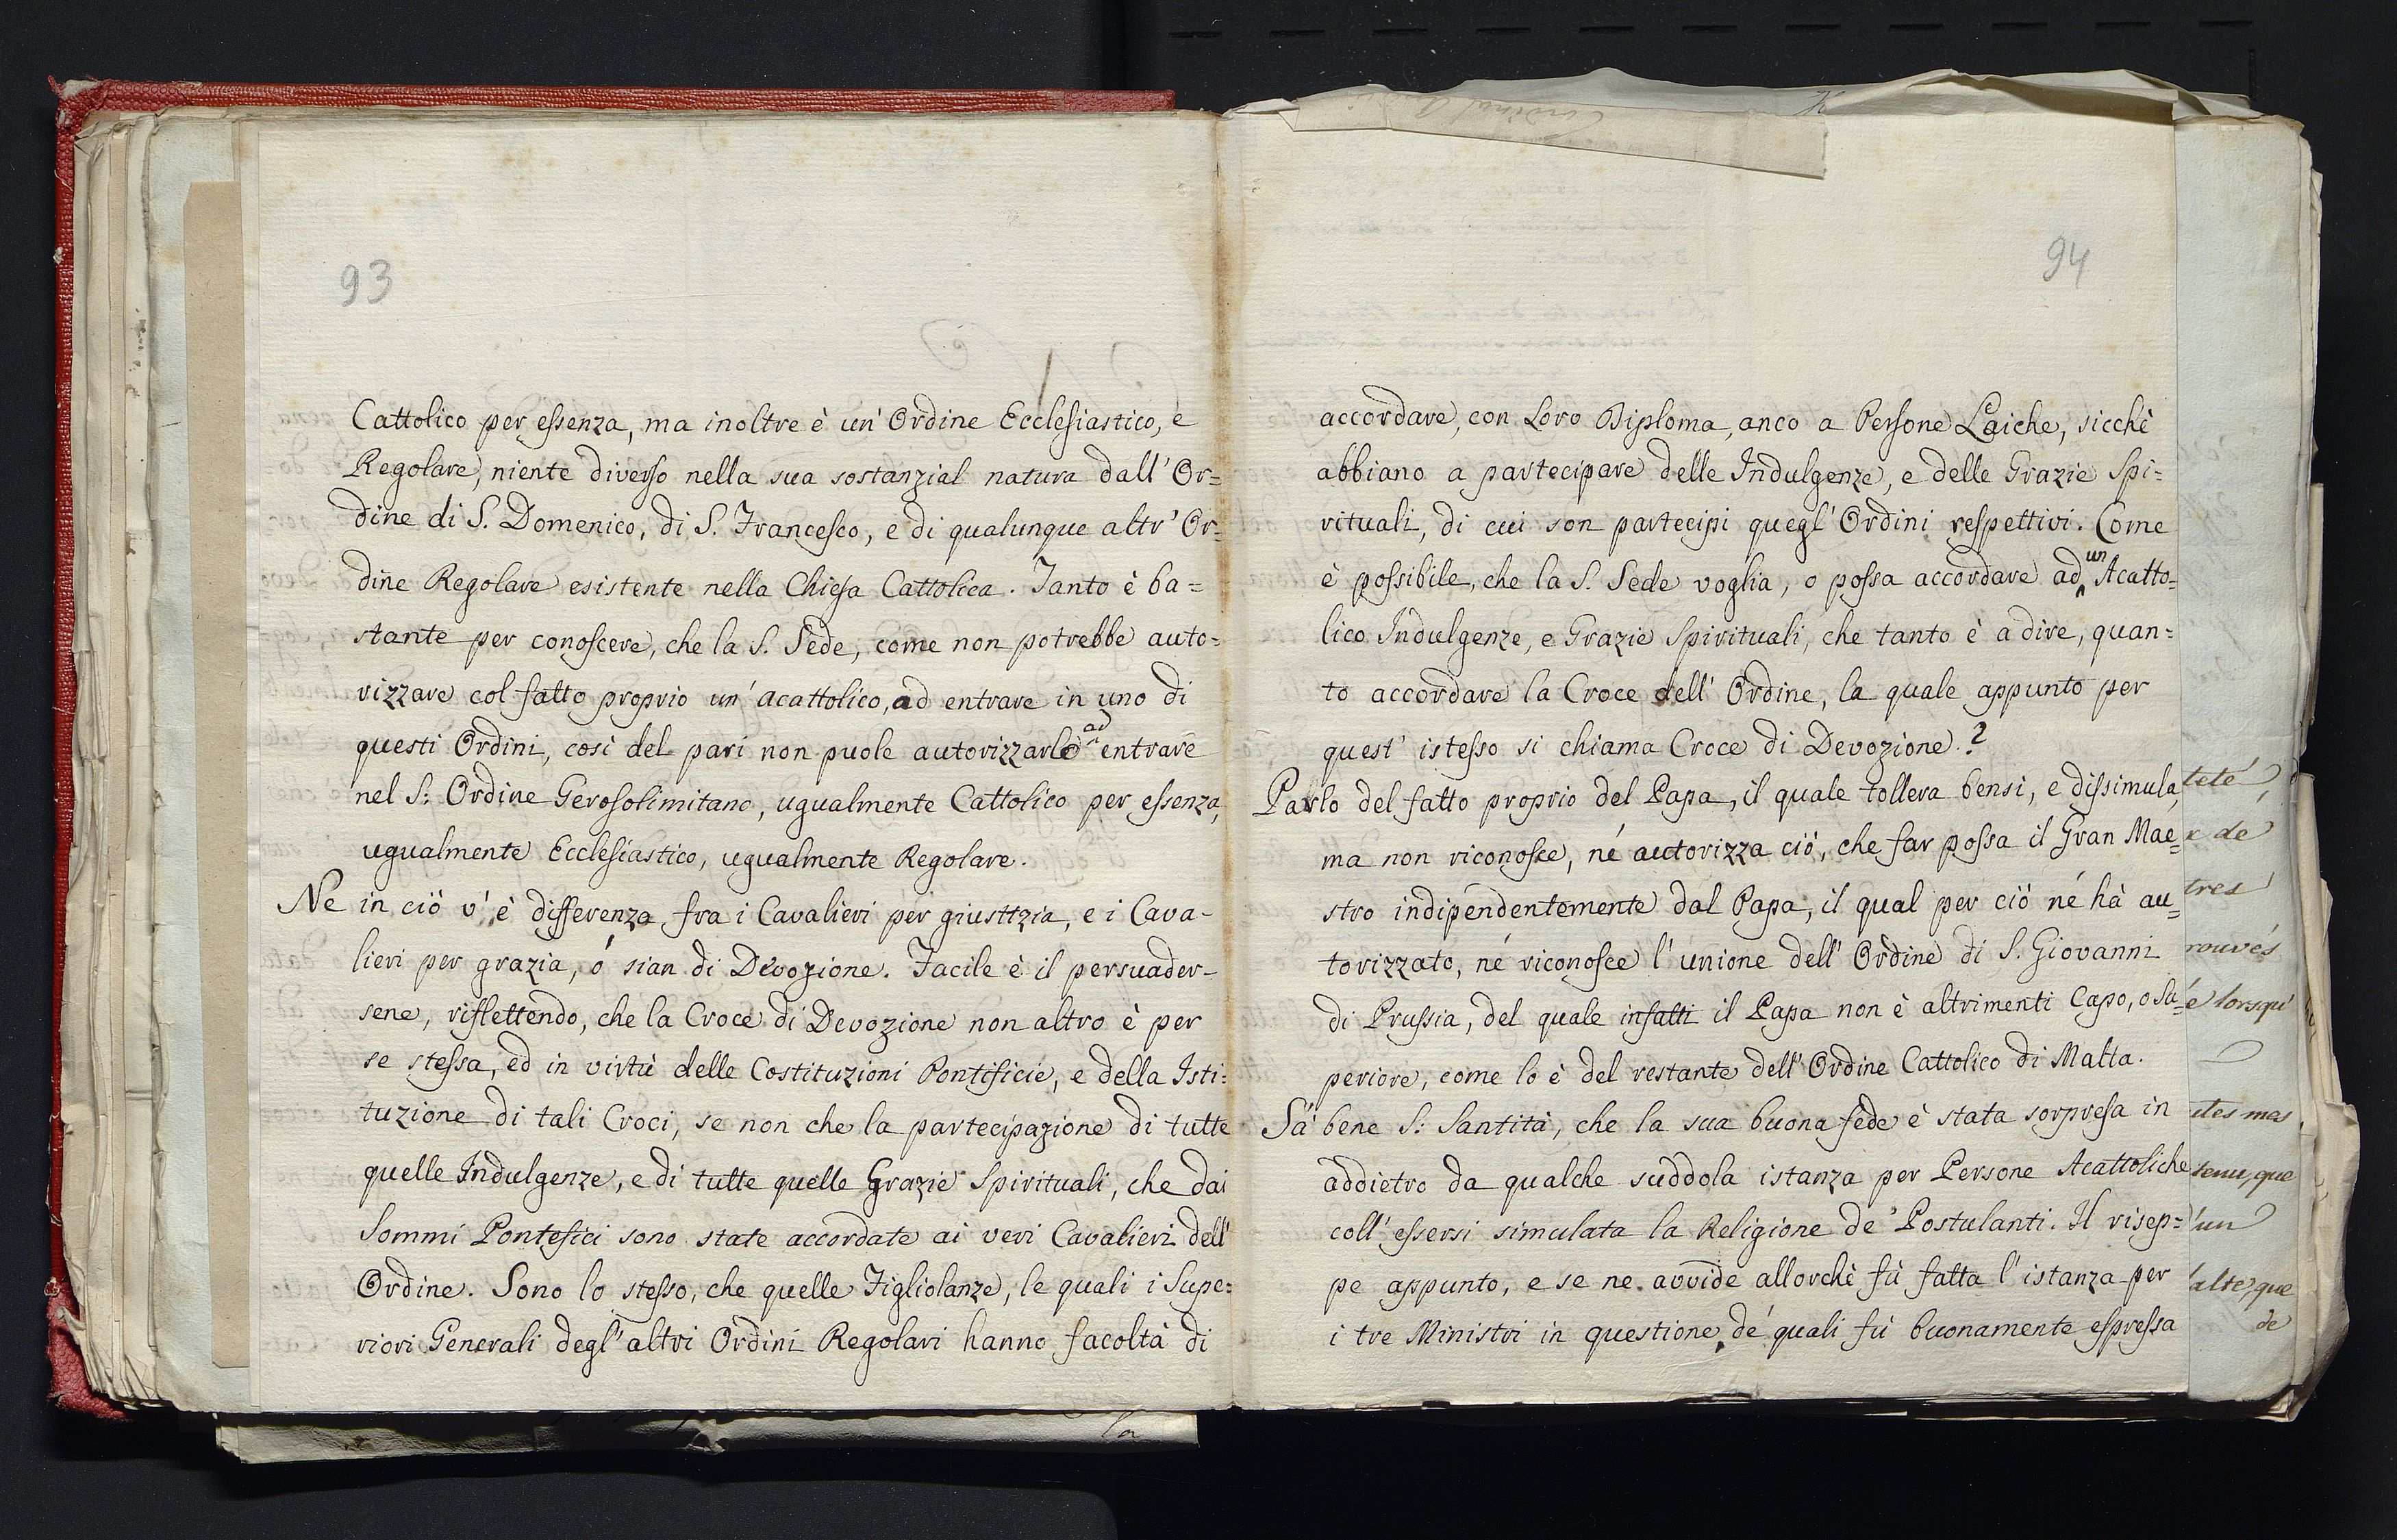 93
Cattolico per essenza, ma inoltre è un' Ordine Ecclesiastico, e
Regolare, niente diverso nella sua sostanzial natura dall' Or=
dine di S. Domenico, di S. Francesco, e di qualunque altr' Or=
dine Regolare esistente nella Chiesa Cattolica. Tanto è ba=
stante per conoscere, che la S. Sede, come non potrebbe auto=
rizzare col fatto proprio un' acattolico, ad entrare in uno di
questi Ordini, così del pari non puole autorizzarlo ad entrare
nel S: Ordine Gerosolimitano, ugualmente Cattolico per essenza,
ugualmente Ecclesiastico, ugualmente Regolare.
Ne in ciò v' è differenza fra i Cavalieri per giustizia, e i Cava-
lieri per grazia, ó sian di Devozione. Facile è il persuader-
sene, riflettendo, che la Croce di Devozione non altro è per
se stessa, ed in virtù delle Costituzioni Pontificie, e della Isti=
tuzione di tali Croci, se non che la partecipazione di tutte
quelle Indulgenze, e di tutte quelle Grazie Spirituali, che dai
Sommi Pontefici sono state accordate ai veri Cavalieri dell'
Ordine. Sono lo stesso, che quelle Figliolanze, le quali i Supe=
riori Generali degl' altri Ordini Regolari hanno facoltà di
la
94
accordare, con Loro Diploma, anco a Persone Laiche, sicchè
abbiano a partecipare delle Indulgenze, e delle Grazie Spi=
rituali, di cui son partecipi quegl' Ordini respettivi. Come
è possibile, che la S. Sede voglia, o possa accordare ad un Acatto=
lico Indulgenze, e Grazie Spirituali, che tanto è a dire, quan=
to accordare la Croce dell' Ordine, la quale appunto per
quest' istesso si chiama Croce di Devozione.?
Parlo del fatto proprio del Papa, il quale tollera bensi, e dissimula,
ma non riconosce, né autorizza ciò, che far possa il Gran Mae=
stro indipendentemente dal Papa, il qual per ciò né hà au=
torizzato, né riconosce l' unione dell' Ordine di S. Giovanni
di Prussia, del quale infatti il Papa non è altrimenti Capo, o Su=
periore, come lo è del restante dell' Ordine Cattolico di Malta.
Sá bene S: Santità, che la sua buona fede è stata sorpresa in
addietro da qualche suddola istanza per Persone Acattoliche
coll' essersi simulata la Religione de' Postulanti. Il risep=
pe appunto, e se ne avvide allorchè fù fatta l' istanza per
i tre Ministri in questione, de' quali fù buonamente espressa
teté
x de
tres
rouvés
é lorsqu'
ites mas
tenu, que
'un
alte, que
de